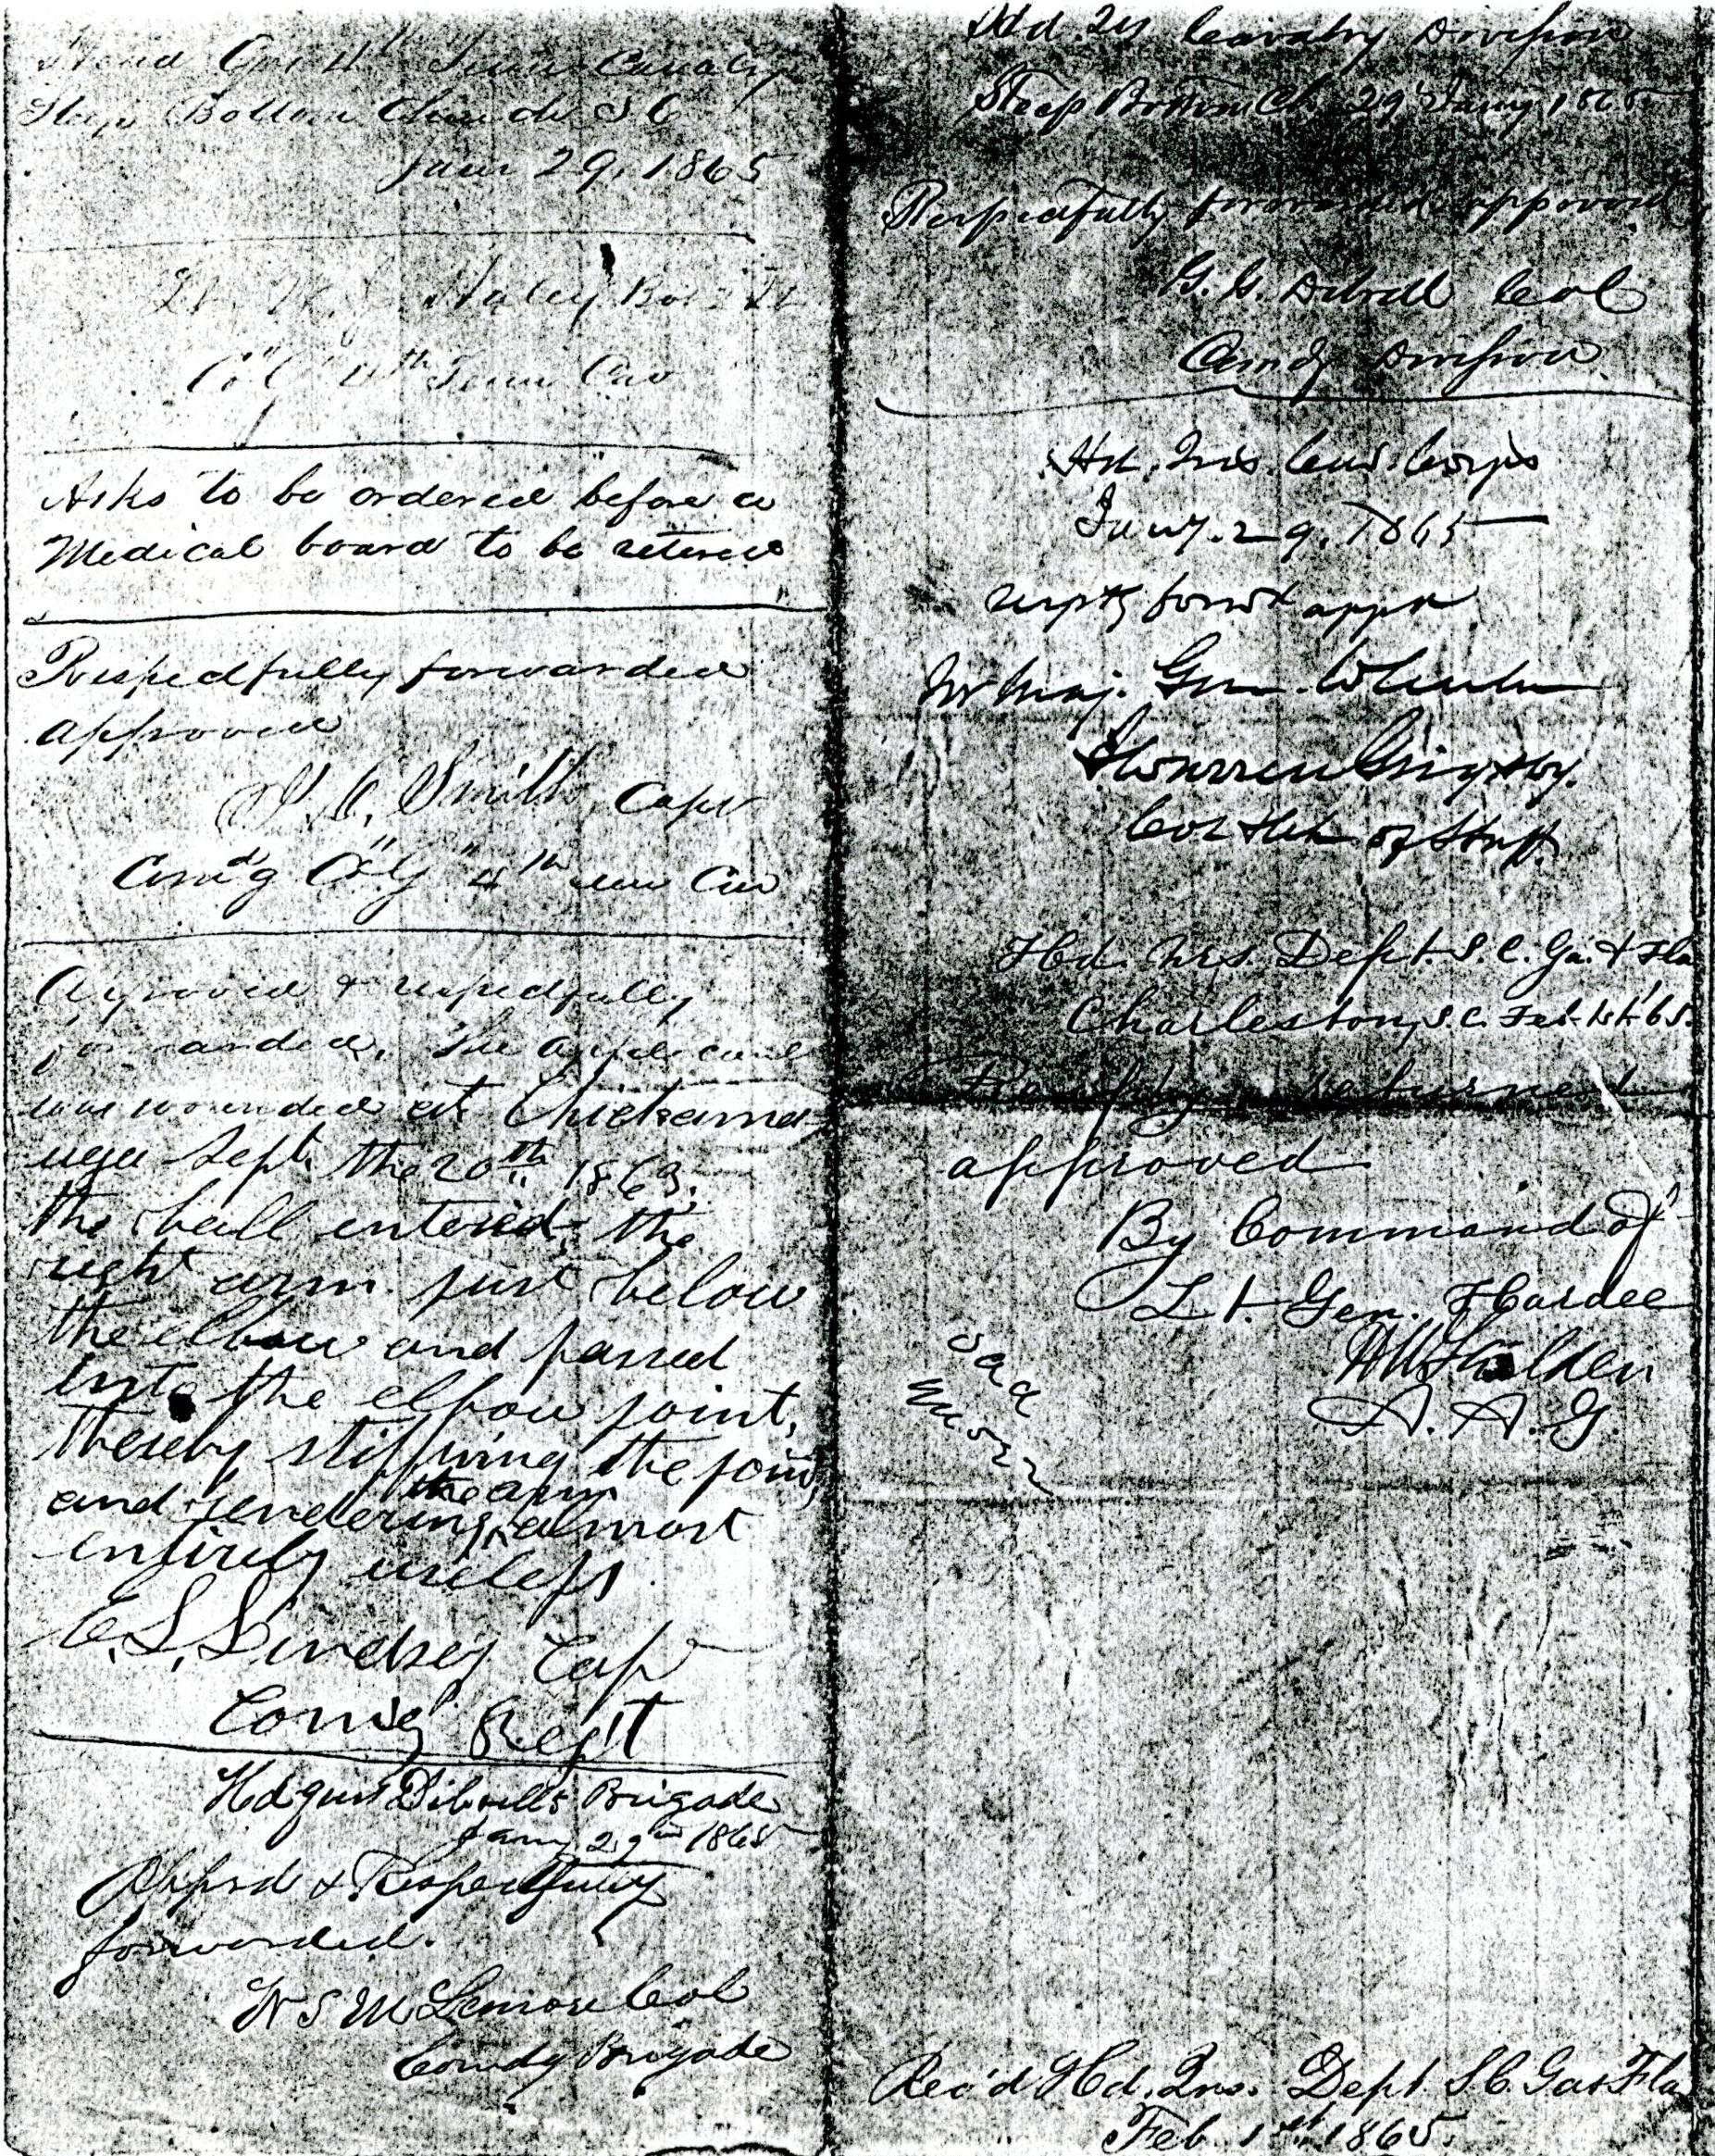 Head Qrs 4th Tenn Cavalry
Steep Bottom Church S C
Jany 29, 1865
Lt W. J. Haley
Co "G" 4th Tenn Cav
Asks to be ordered before a
Medical board to be retired
Respectfully forwarded
approved
Smith, Capt
Comdg Co "G" 4th Tenn Cav
Approved & respectfully
forwarded. The applicant
was wounded at Chickama-
uga Sept. the 20th 1863.
the ball entered the
right arm just below
the elbow and passed
into the elbow joint,
thereby stiffning the joint,
and rendering the arm almost
entirely useless
E. S. Lindsey Cap
Comdg Regt
Hdqurs Dibrells Brigade
Jany 29th 1865
Apprd & Respectfully
forwarded.
W S McLemore Col
Comdg Brigade
Hd. Qrs Cavalry Division
Steep Bottom Ch. 29 Jany 1865
Respectfully forwarded approved
G. G. Dibrell Col
Comdg Division
Hd. Qrs. Cav. Corps
Jany. 29. 1865
respty forwd appd
For Maj. Gen. Wheeler
J Warren Grigsby.
Col & Ch of Staff.
Hd. Qrs. Dept. S. C. Ga. & Fla
Charleston, S. C. Feb. 1st '65.
Respfy returned
approved
By Command of
Lt. Gen. Hardee
A. A. G.
Rec'd Hd. Qrs. Dept. S. C. Ga & Fla
Feb. 1st 1865.